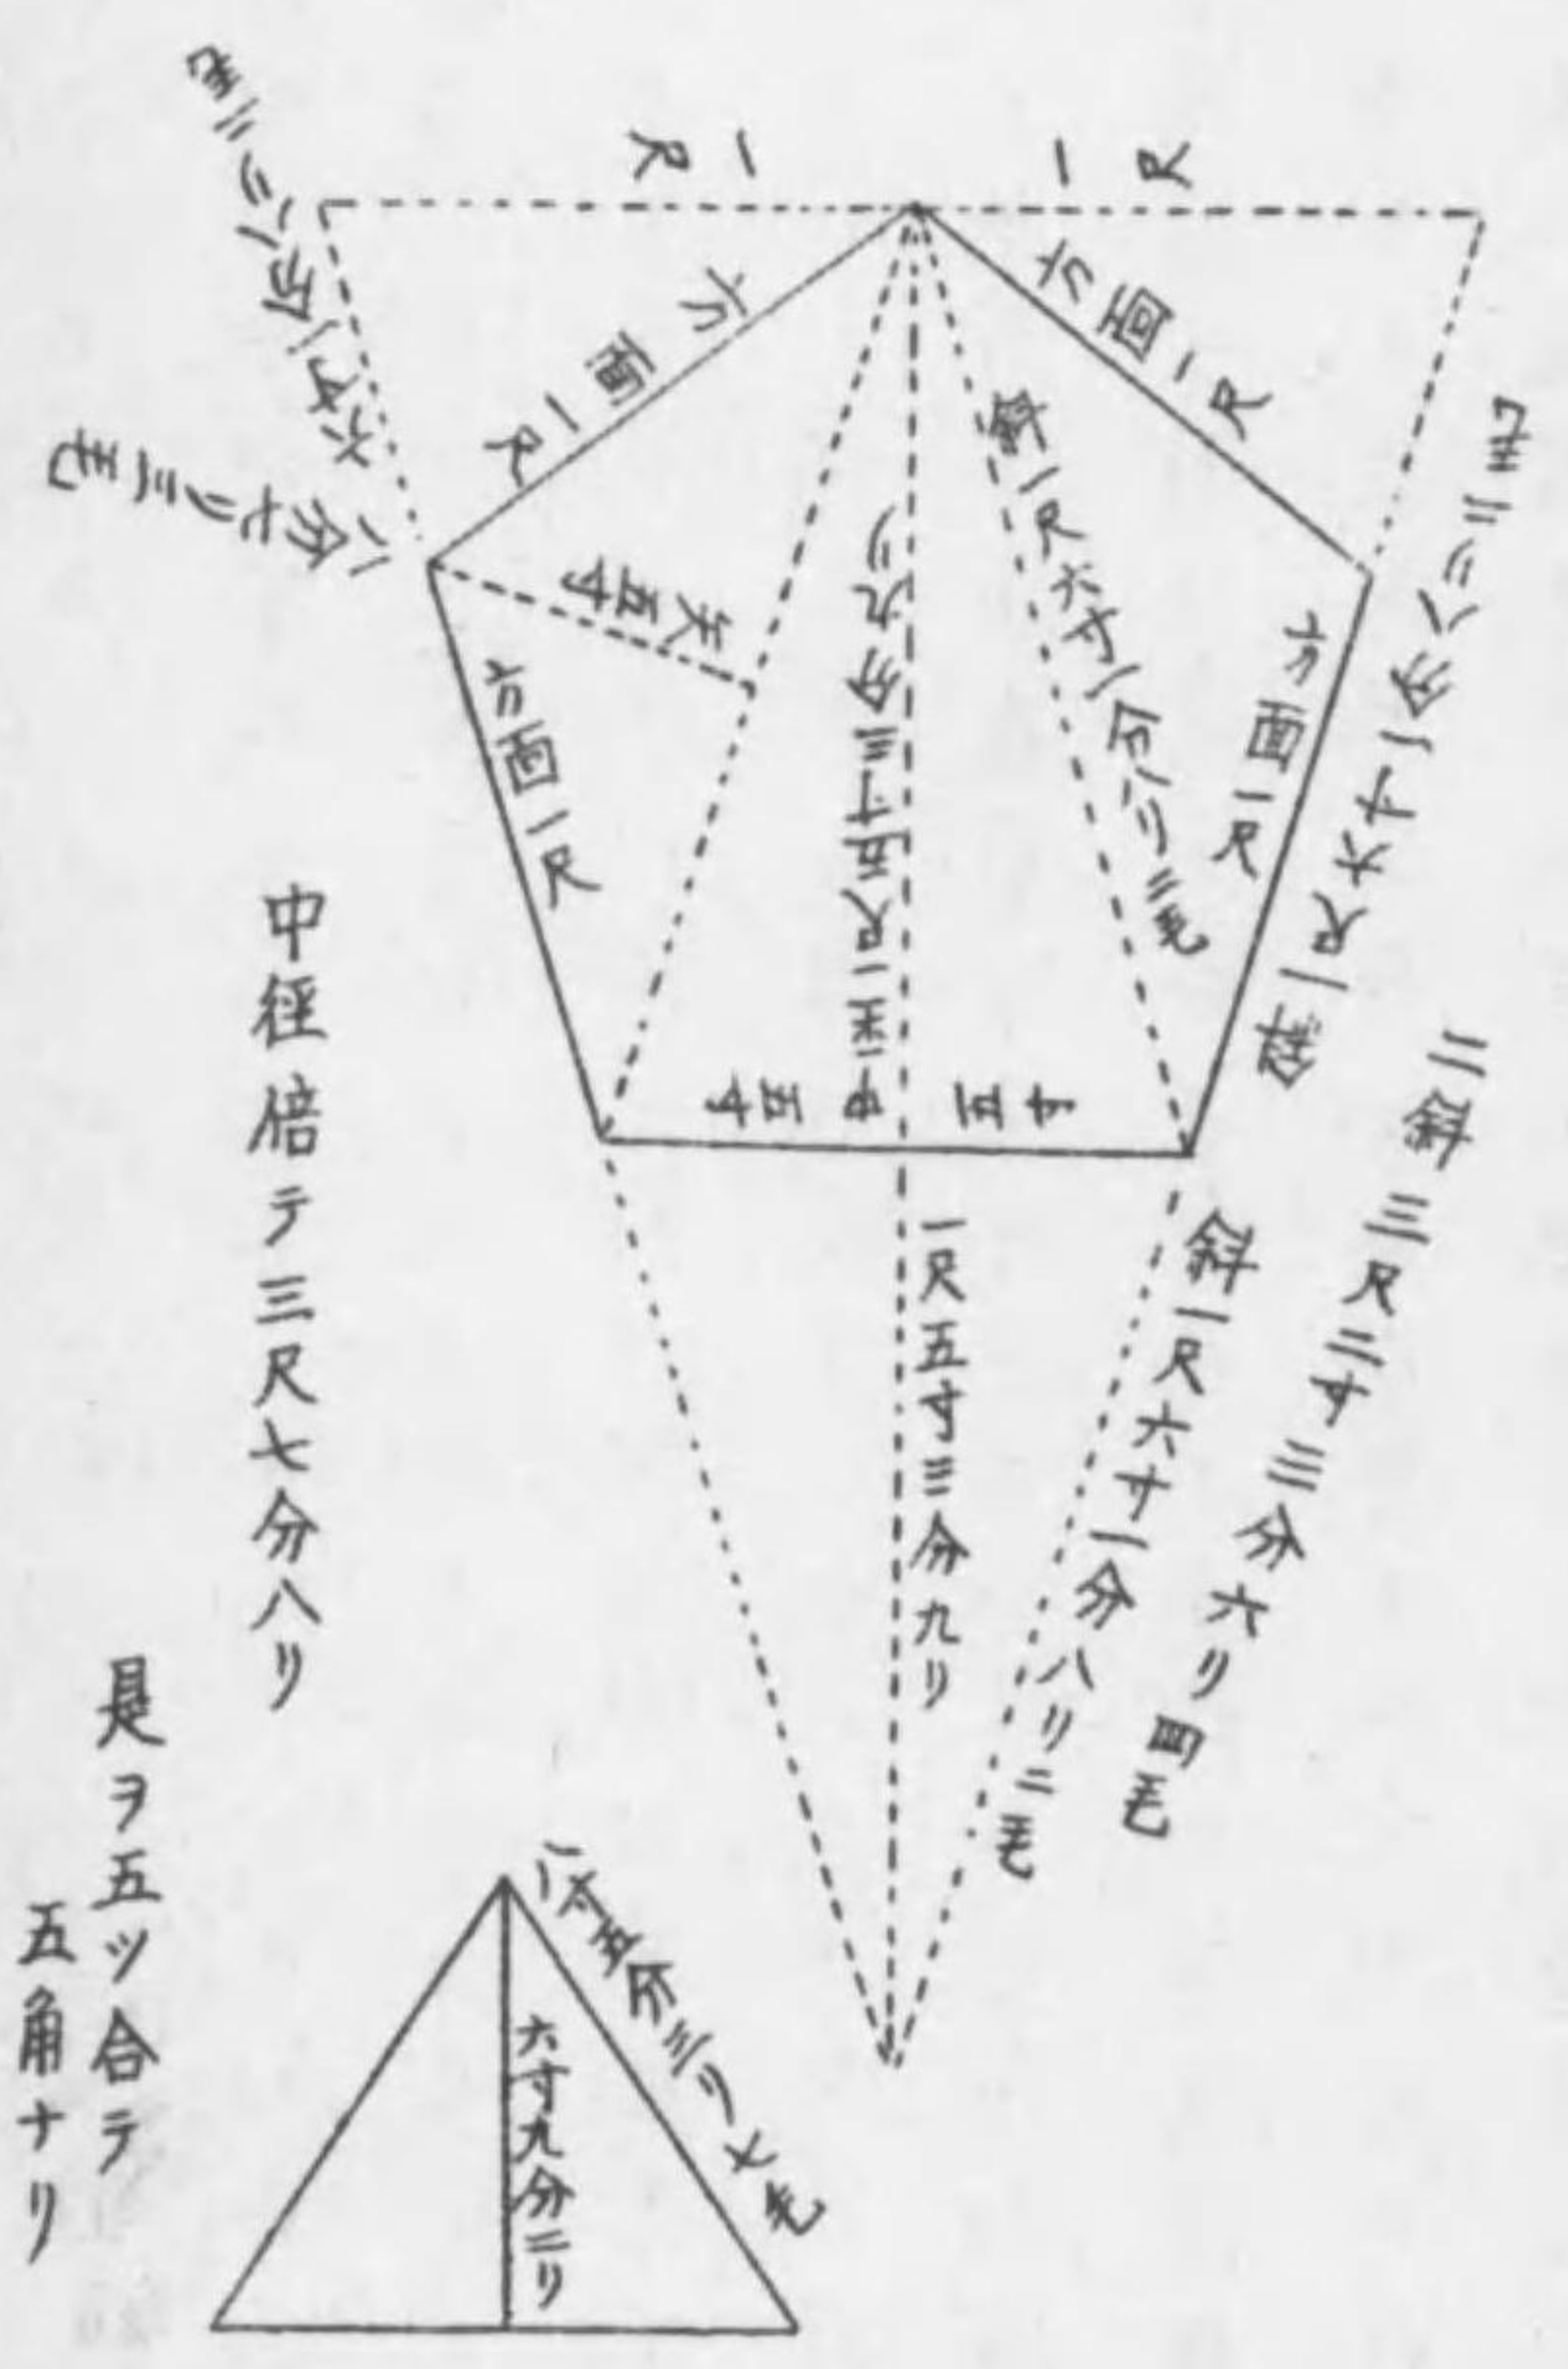 一尺
一尺
方面一尺
方面一尺
方面一尺
方面一尺
斜一尺六寸一分八リ二毛
中ニ至一尺五寸三分九リ
五寸
五寸
八分七リ三毛
二斜三尺二寸三分六リ四毛
斜一尺六寸一分八リ二毛
一尺五寸三分九リ
中径倍テ三尺七分八リ
是ヲ五ツ合テ
五角ナリ
八寸五分三リ七毛
六寸九分二リ